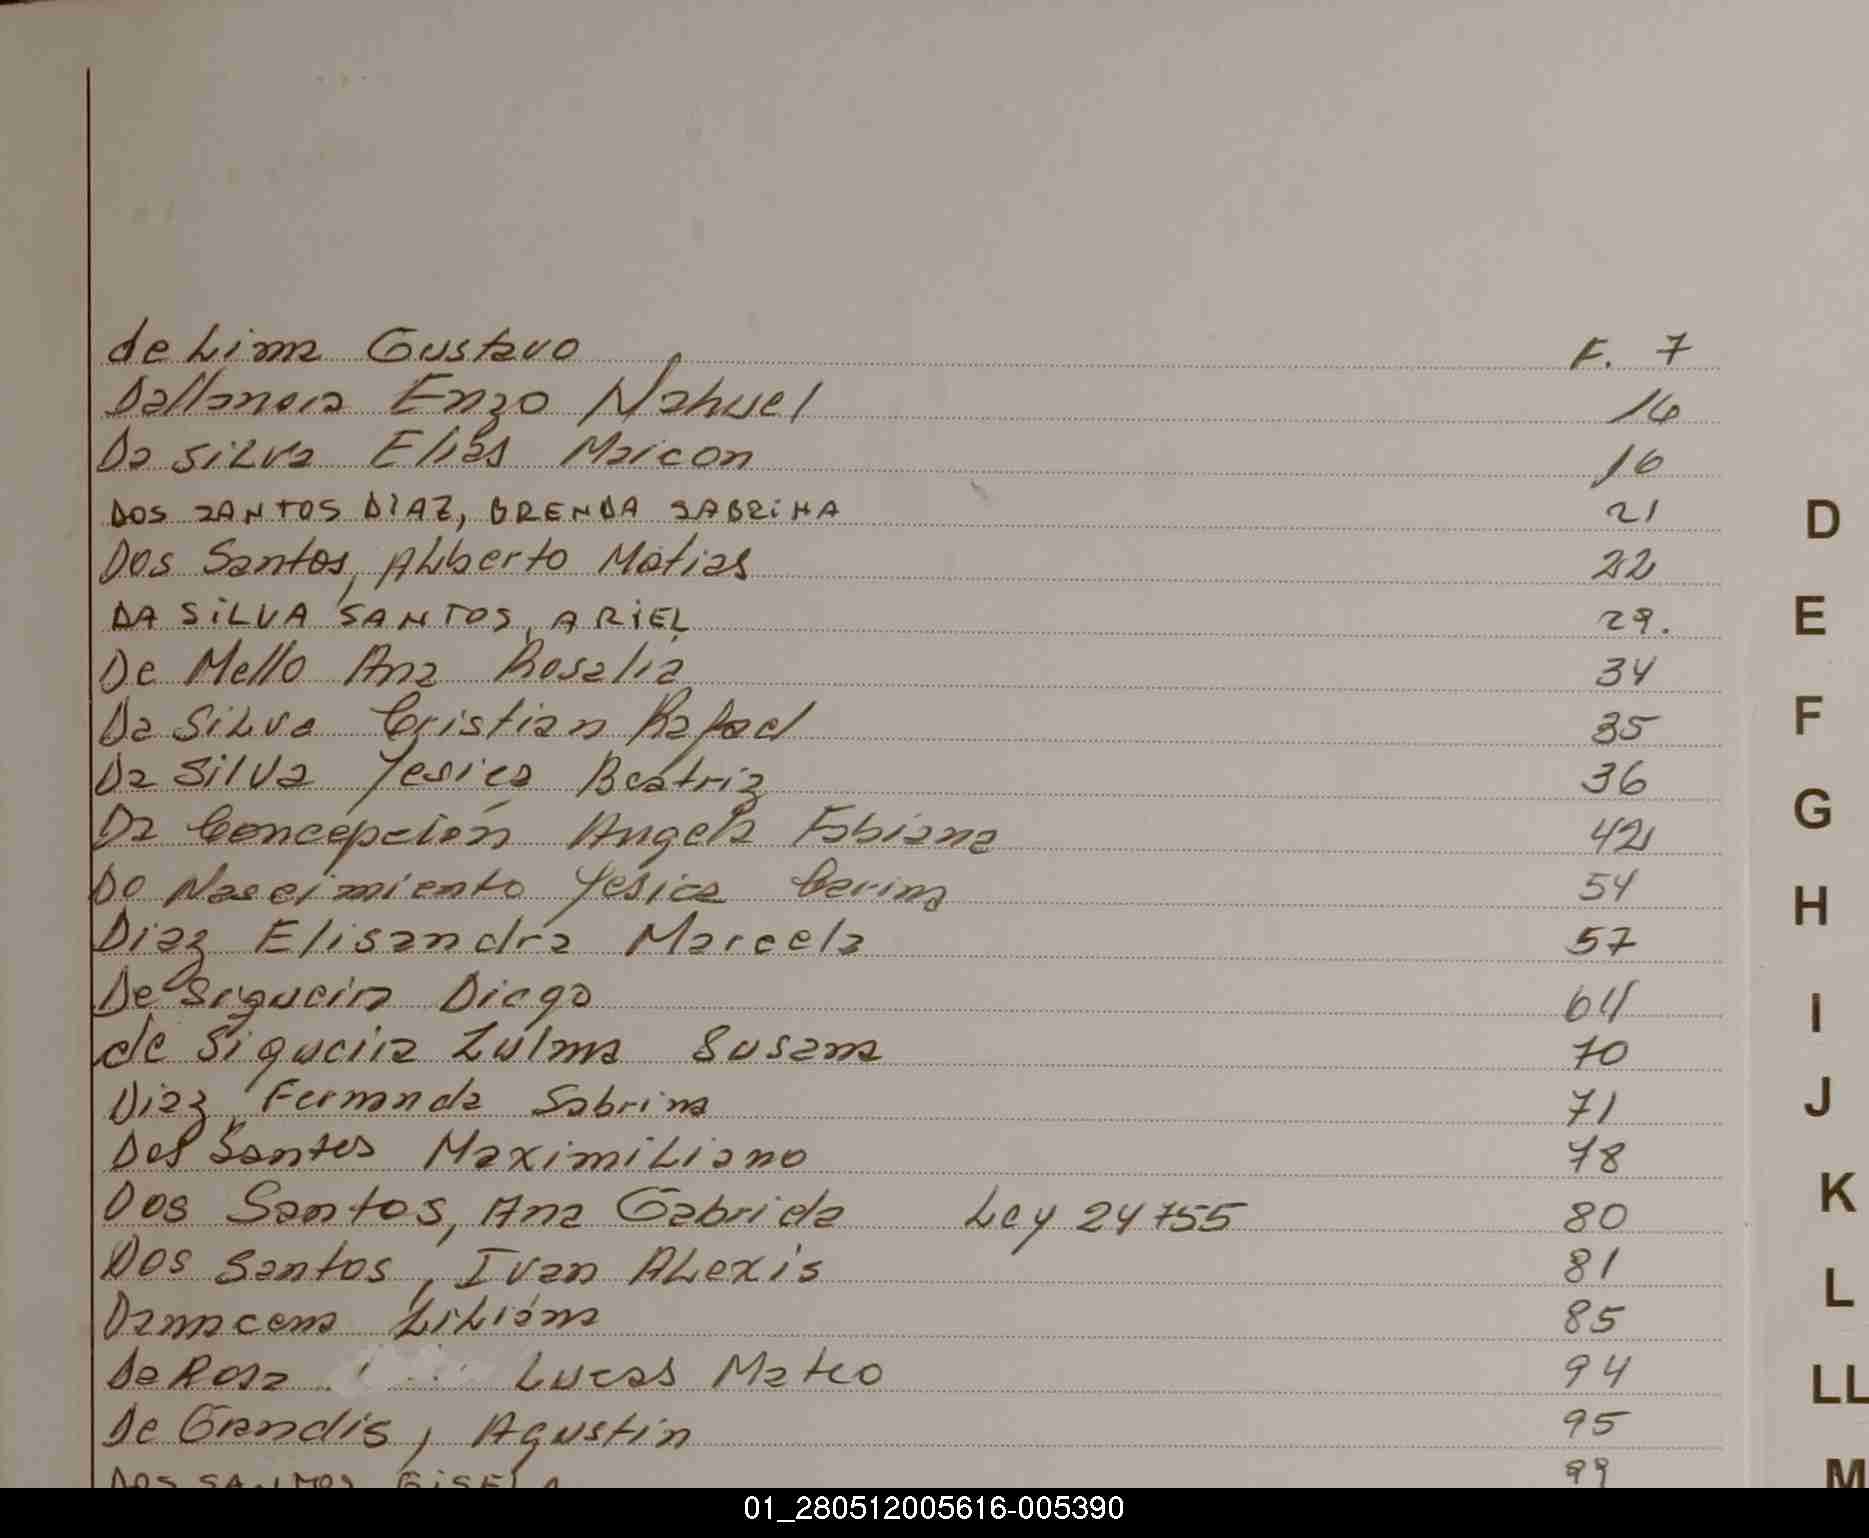 de Lima Gustavo F. 7
Dallanora Enzo Nahuel 16
Da Silva Elias Maicon 16
DOS SANTOS DIAZ, BRENDA SABRINA 21
Dos Santos, Aliberto Matias 22
DA SILVA SANTOS, ARIEL 29.
De Mello Ana Rosalia 34
Da Silva Cristian Rafael 35
Da Silva Yesica Beatriz 36
Da Concepción Angela Fabiana 42
Do Nascimiento Yesica Carina 54
Diaz Elisandra Marcela 57
De Siqueira Diego 64
de Siqueira Zulma Susana 70
Diaz, Fernanda Sabrina 71
Dos Santos Maximiliano 78
Dos Santos, Ana Gabriela Ley 24755 80
Dos Santos, Ivan Alexis 81
Damacena Liliana 85
De Rosa Lucas Mateo 94
De Grandis, Agustin 95
DOS SANTOS GISELA 99
D
E
F
G
H
I
J
K
L
LL
M
01_280512005616-005390